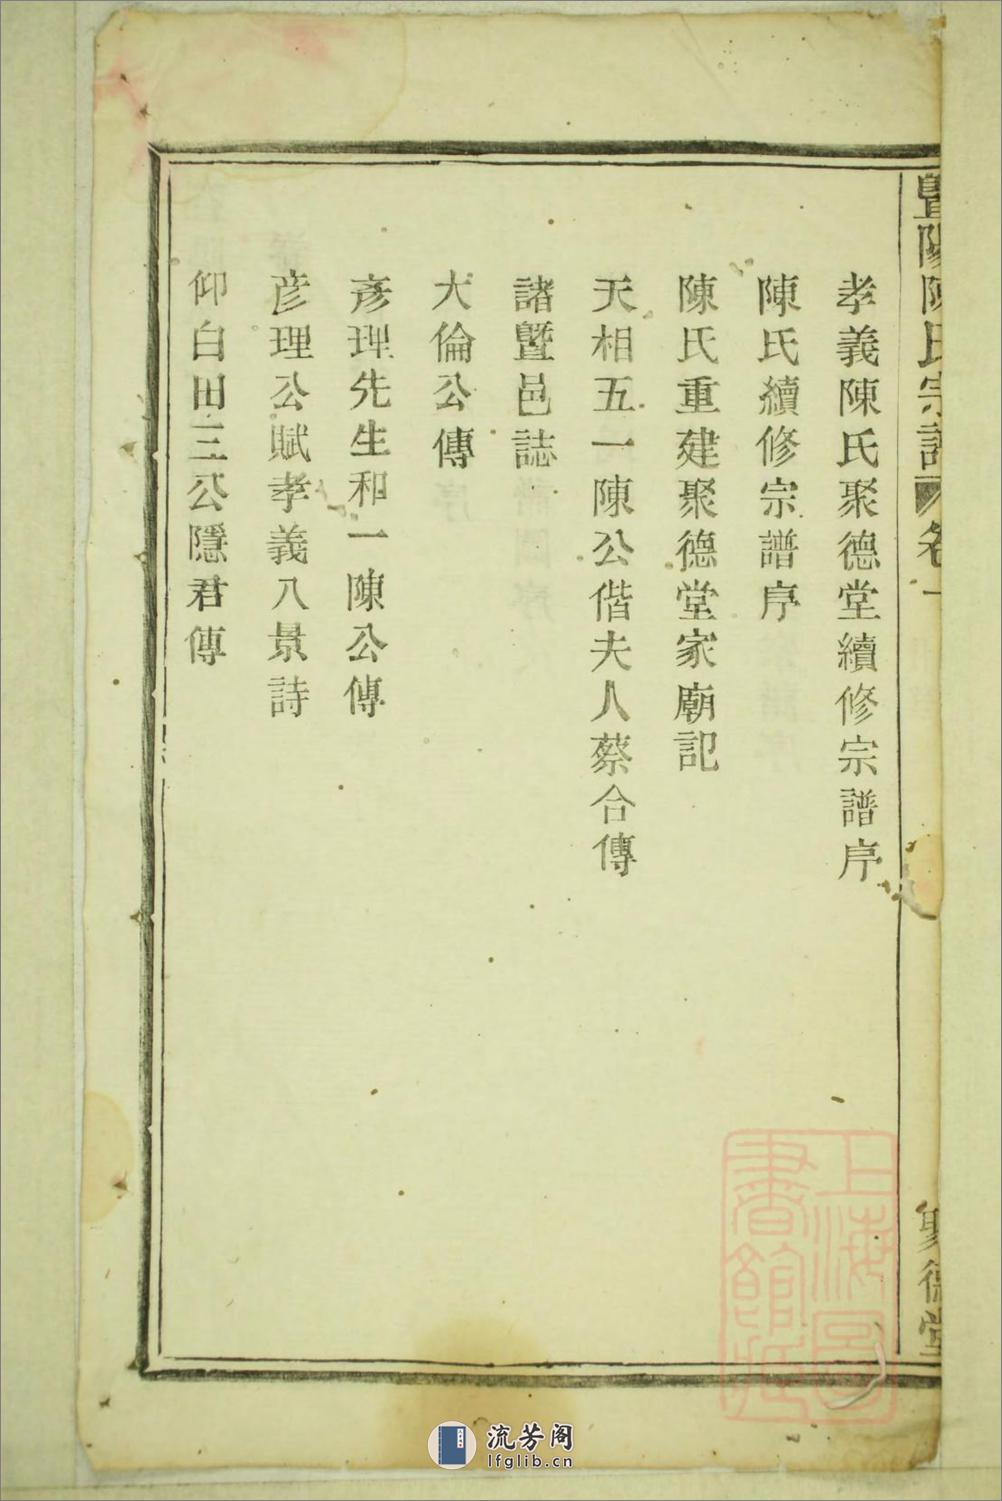 暨陽陳氏宗譜 卷一
聚德堂
孝義陳氏聚德堂續修宗譜序
陳氏續修宗譜序
陳氏重建聚德堂家廟記
天相五一陳公偕夫人蔡合傳
諸曁邑誌
大倫公傳
彥理先生和一陳公傳
彦理公賦孝義八景詩
仰白田三公隱君傳
上海圖書館藏
流芳阁
lfglib.cn